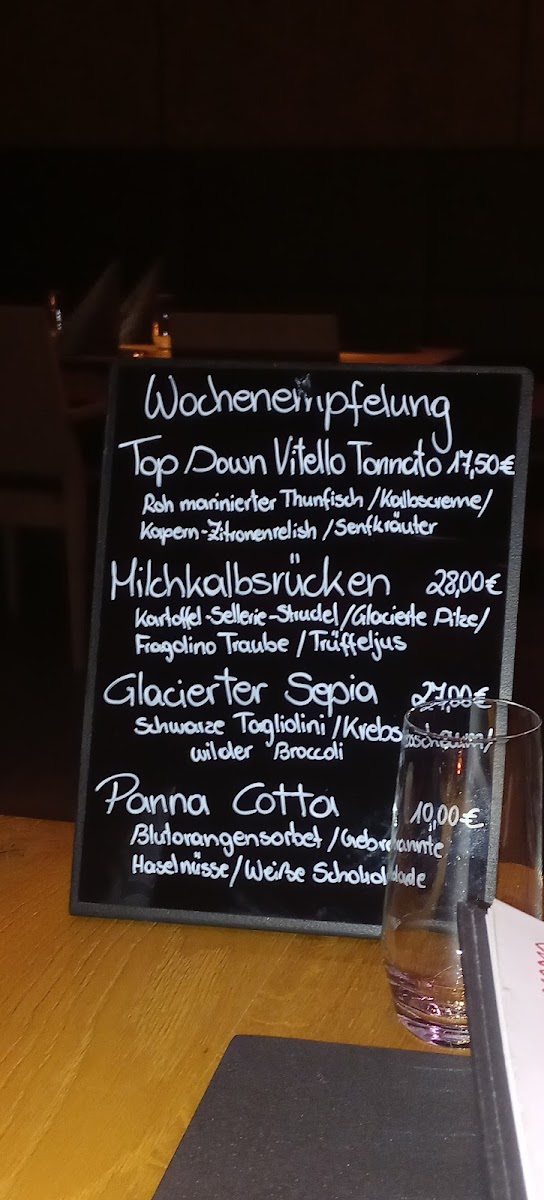 Wochenempfelung
Top Down Vitello Tonnato 17,50€
Roh marinierter Thunfisch / Kalbscreme /
Kapern-Zitronenrelish / Senfkräuter
Milchkalbsrücken 28,00€
Kartoffel-Sellerie-Strudel / Glacierte Pilze /
Fragolino Traube / Trüffeljus
Glacierter Sepia 27,00€
Schwarze Tagliolini / Krebsschaum /
wilder Broccoli
Panna Cotta 10,00€
Blutorangensorbet / Gebrannte
Haselnüsse / Weiße Schokolade